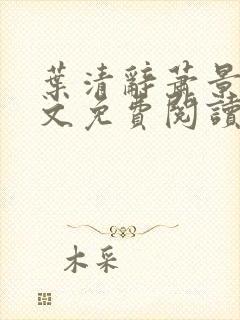 葉清辭蕭景
文免費閱讀
木采